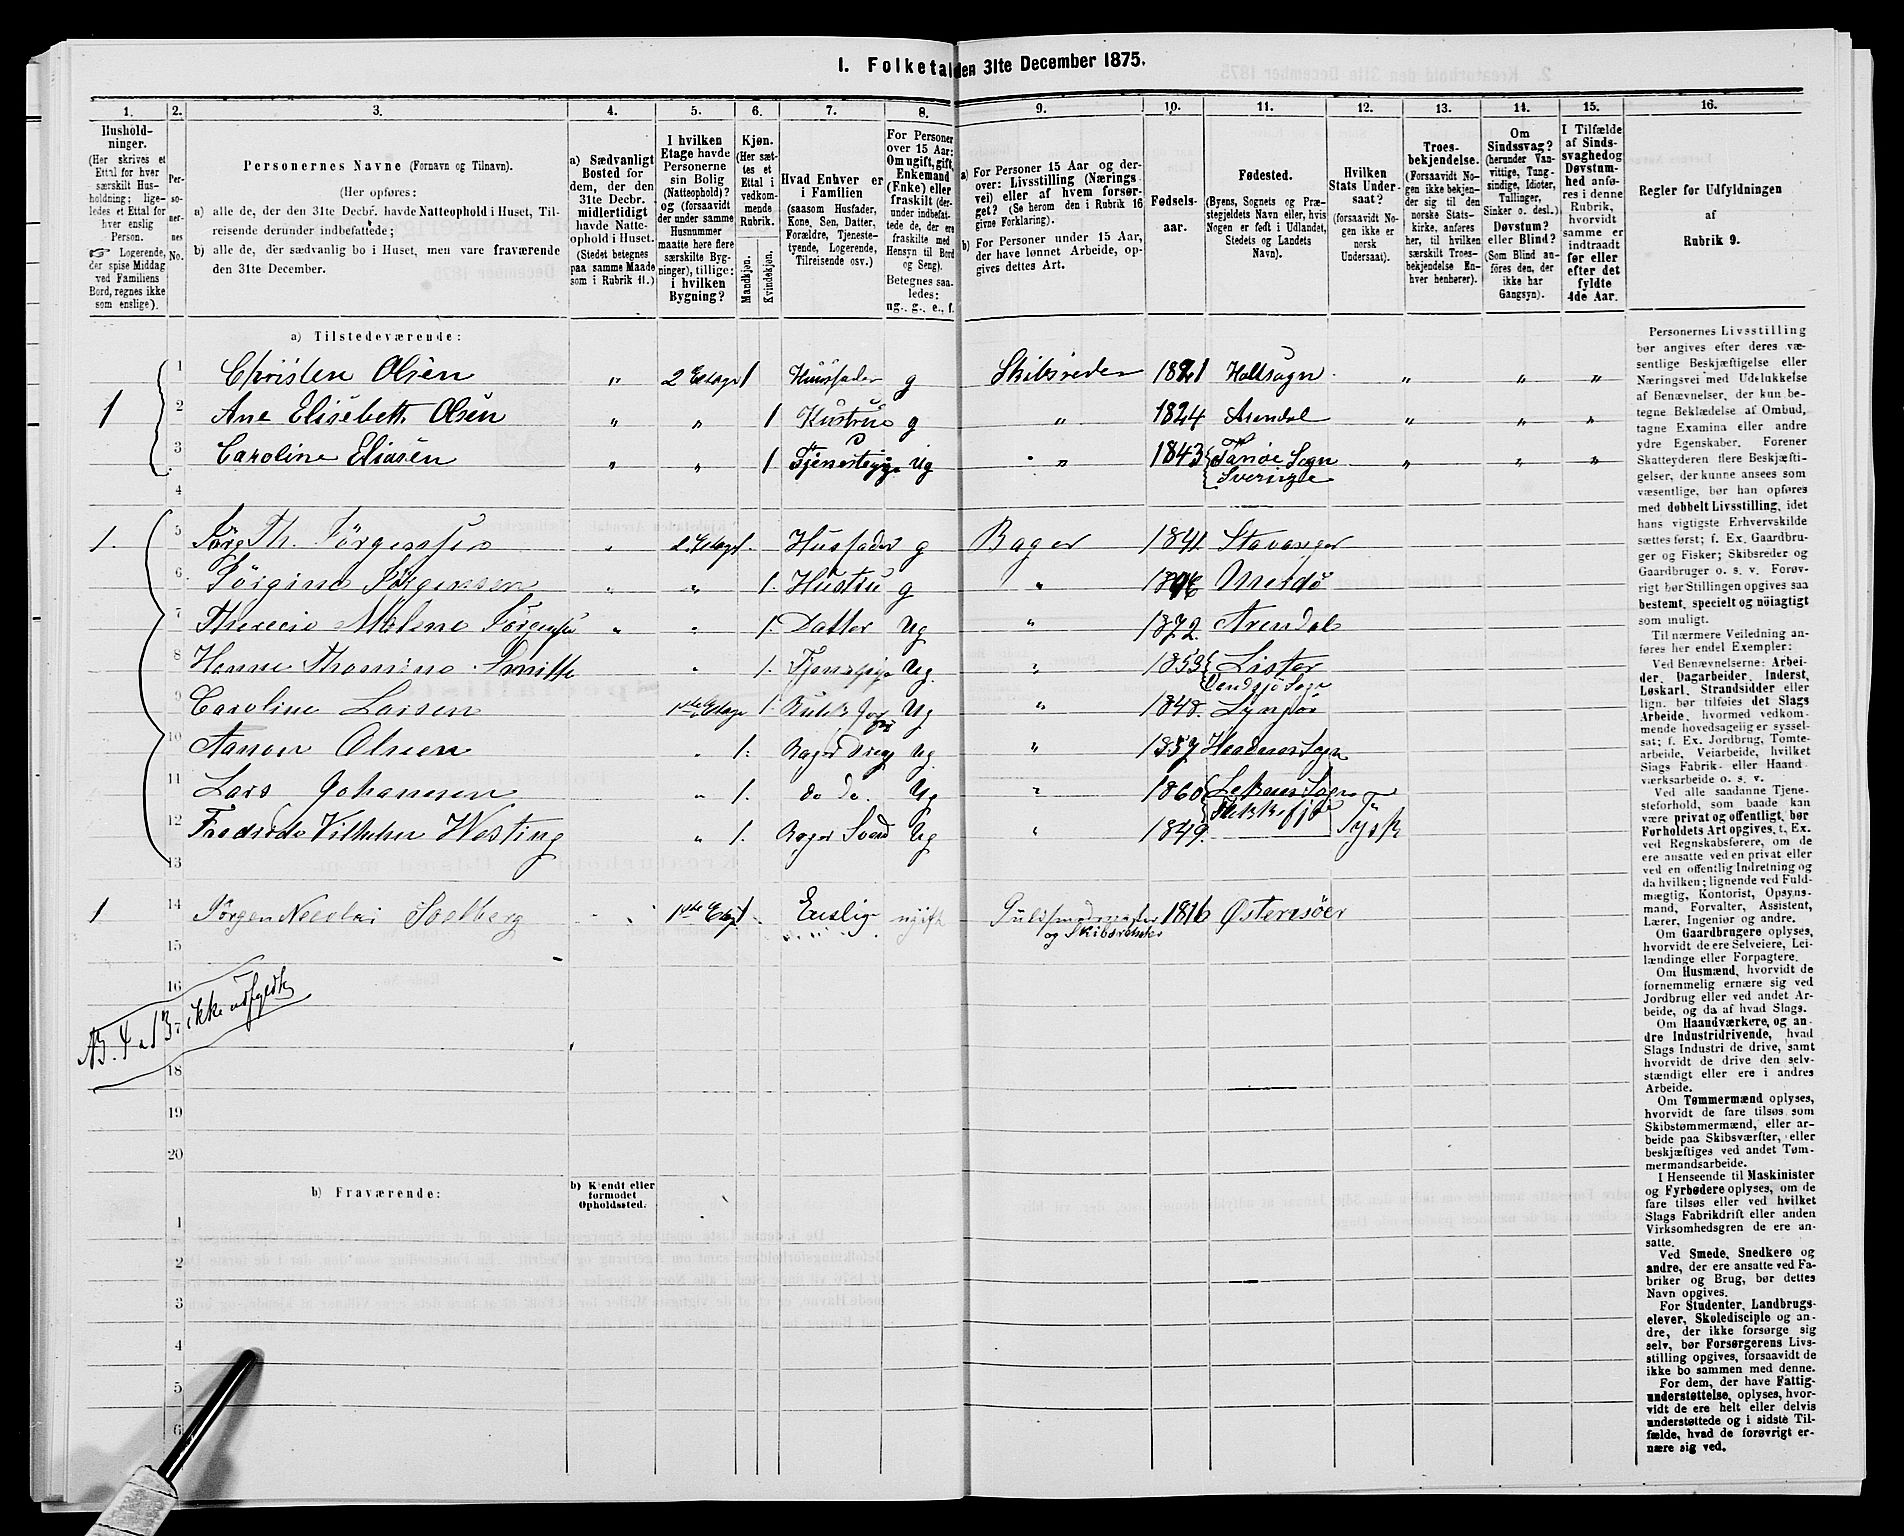 1. Folketal den 31te December 1875.
1. 2. 3. 4. 5. 6. 7. 8. 9. 10. 11. 12. 13. 14. 15. 16.
Hushold-
ninger.
(Her skrives et
Ettal for hver
særskilt Hus-
holdning; lige-
ledes et Ettal for
hver enslig
Person.
☞ Logerende,
der spise Middag
ved Familiens
Bord, regnes ikke
som enslige).
Per-
so-
ner-
nes
No.
Personernes Navne (Fornavn og Tilnavn).
(Her opføres:
a) alle de, der den 31te Decbr. havde Natteophold i Huset, Til-
reisende derunder indbefattede;
b) alle de, der sædvanlig bo i Huset, men vare fraværende
den 31te December.
a) Sædvanligt
Bosted for
dem, der den
31te Decbr.
midlertidigt
havde Natte-
ophold i Huset.
(Stedet betegnes
paa samme Maade
som i Rubrik 11.)
I hvilken
Etage havde
Personerne
sin Bolig
(Natteophold)?
og (forsaavidt
der under samme
Husnummer
maatte høre flere
særskilte Byg-
ninger), tillige:
i hvilken
Bygning?
Kjøn.
(Her sæt-
tes et
Ettal i
vedkom-
mende
Rubrik.)
Mandkjøn.
Kvindekjøn.
Hvad Enhver er
i Familien
(saasom Husfader,
Kone, Søn, Datter,
Forældre, Tjeneste-
tyende, Logerende,
Tilreisende osv.)
For Personer
over 15 Aar:
Om ugift, gift,
Enkemand
(Enke) eller
fraskilt (der-
under indbefat-
tede de, der ere
fraskilte med
Hensyn til Bord
og Seng).
Betegnes saa-
ledes:
ug., g., e., f.
a) For Personer 15 Aar og der-
over: Livsstilling (Nærings-
vei) eller af hvem forsør-
get? (Se herom den i Rubrik 16
givne Forklaring).
b) For Personer under 15 Aar,
der have lønnet Arbeide, op-
gives dettes Art.
Fødsels-
aar.
Fødested.
(Byens, Sognets og Præ-
stegjeldets Navn eller, hvis
Nogen er født i Udlandet,
Stedets og Landets
Navn).
Hvilken
Stats Under-
saat?
(forsaavidt No-
gen ikke er
norsk
Undersaat).
Troes-
bekjendelse.
(Forsaavidt No-
gen ikke bekjen-
der sig til den
norske Stats-
kirke, anføres
her, til hvilken
særskilt Troes-
bekjendelse En-
hver henhører).
Om
Sindssvag?
(herunder Van-
vittige, Tung-
sindige, Idioter,
Tullinger,
Sinker o. desl.)
Døvstum?
eller Blind?
(Som Blind an-
føres den, der
ikke har
Gangsyn).
I Tilfælde
af Sinds-
svaghed og
Døvstum-
hed anfø-
res i denne
Rubrik,
hvorvidt
samme er
indtraadt
før eller
efter det
fyldte
4de Aar.
Regler for Udfyldningen
af
Rubrik 9.
a) Tilstedeværende:
1 Christen Olsen „ 2 Etage 1 Huusfader g Skibsreder 1821 Holtsogn „ „ „
1 2 Ane Elisebeth Olsen „ „ 1 Hustrue g „ 1824 Arendal „ „ „
3 Caroline Eliasen „ „ 1 Tjenestepige Ug „ 1843 Tanøe Sogn Sverige „ „ „
4
1. 5 Jørg Th. Jørgensen „ 2. Etage 1. Husfader g Bager 1841 Stavanger
6 Jørgine Jørgensen „ „ 1. Hustru g „ Merdø
7 Malene Jørgensen „ „ 1. Datter Ug „ 1872. Arendal
8 Hanne Thomine „ 1. Tjenstpige Ug. „ 1853 Lister
Sogn
9 Caroline Larsen 1ste Etage 1. Ug „ 1848. Lyngør
10 Aanon Olsen „ 1. Bager Dreng Ug. „ 1857 Sogn
11 Lars Johansen „ 1. do do. Ug „ 1860 Sogn
12 Fredrede Vilhelm Westing „ 1. Bager Svend Ug „ 1849. Tysk
13
1 14 Jørgen Nicolai Soelberg 1ste Etage 1 Enslig ugift Guldsmedmester 1816 Østerrisøer
og Skibsreder
15
16
No. 4 & 13 ikke udfyldt
18
19
20
b) Fraværende:
b) Kjendt eller
formodet
Opholdssted.
1
2
3
4
5
6
Personernes Livsstilling
bør angives efter deres væ-
sentlige Beskjæftigelse eller
Næringsvei med Udelukkelse
af Benævnelser, der kun be-
tegne Beklædelse af Ombud,
tagne Examina eller andre
ydre Egenskaber. Forener
Skatteyderen flere Beskjæfti-
gelser, der kunne ansees som
væsentlige, bør han opføres
med dobbelt Livsstilling, idet
hans vigtigste Erhvervskilde
sættes først; f. Ex. Gaardbru-
ger og Fisker; Skibsreder og
Gaardbruger o. s. v. Forøv-
rigt bør Stillingen opgives saa
bestemt, specielt og nöiagtigt
som muligt.
Til nærmere Veiledning an-
føres her endel Exempler:
Ved Benævnelserne: Arbei-
der, Dagarbeider, Inderst,
Løskarl, Strandsidder eller
lign. bør tilføies det Slags
Arbeide, hvormed vedkom-
mende hovedsagelig er syssel-
sat; f. Ex. Jordbrug, Tømte-
arbeide, Veiarbeide, hvilket
Slags Fabrik- eller Haand-
værksarbeide o. s. v.
Ved alle saadanne Tjene-
steforhold, som baade kan
være privat og offentligt, bør
Forholdets Art opgives, t. Ex.
ved Regnskabsførere, om de
ere ansatte ved en privat eller
ved en offentlig Indretning og
da hvilken; lignende ved Fuld-
mægtig, Kontorist, Opsyns-
mand, Forvalter, Assistent,
Lærer, Ingeniør og andre.
Om Gaardbrugere oplyses,
hvorvidt de ere Selveiere, Lei-
lændinge eller Forpagtere.
Om Husmænd, hvorvidt de
fornemmelig ernære sig ved
Jordbrug eller ved andet Ar-
beide, og da af hvad Slags.
Om Haandværkere, og an-
dre Industridrivende, hvad
Slags Industri de drive, samt
hvorvidt de drive den selv-
stændigt eller ere i andres
Arbeide.
Om Tømmermænd oplyses,
hvorvidt de fare tilsøs som
Skibstømmermænd, eller ar-
beide paa Skibsværfter, eller
beskjæftiges ved andet Tøm-
mermandsarbeide.
I Henseende til Maskinister
og Fyrbødere oplyses, om de
fare tilsøs eller ved hvilket
Slags Fabrikdrift eller anden
Virksomhedsgren de ere an-
satte.
Ved Smede, Snedkere og
andre, der ere ansatte ved Fa-
briker og Brug, bør dettes
Navn opgives.
For Studenter, Landbrugs-
elever, Skoledisciple og an-
dre, der ikke forsørge sig
selv, bør Forsørgerens Livs-
stilling opgives, forsaavidt de
ikke bo sammen med denne.
For dem, der have Fattig-
understøttelse, oplyses, hvor-
vidt de ere helt eller delvis
understøttede og i sidste Til-
fælde, hvad de forøvrigt er-
nære sig ved.